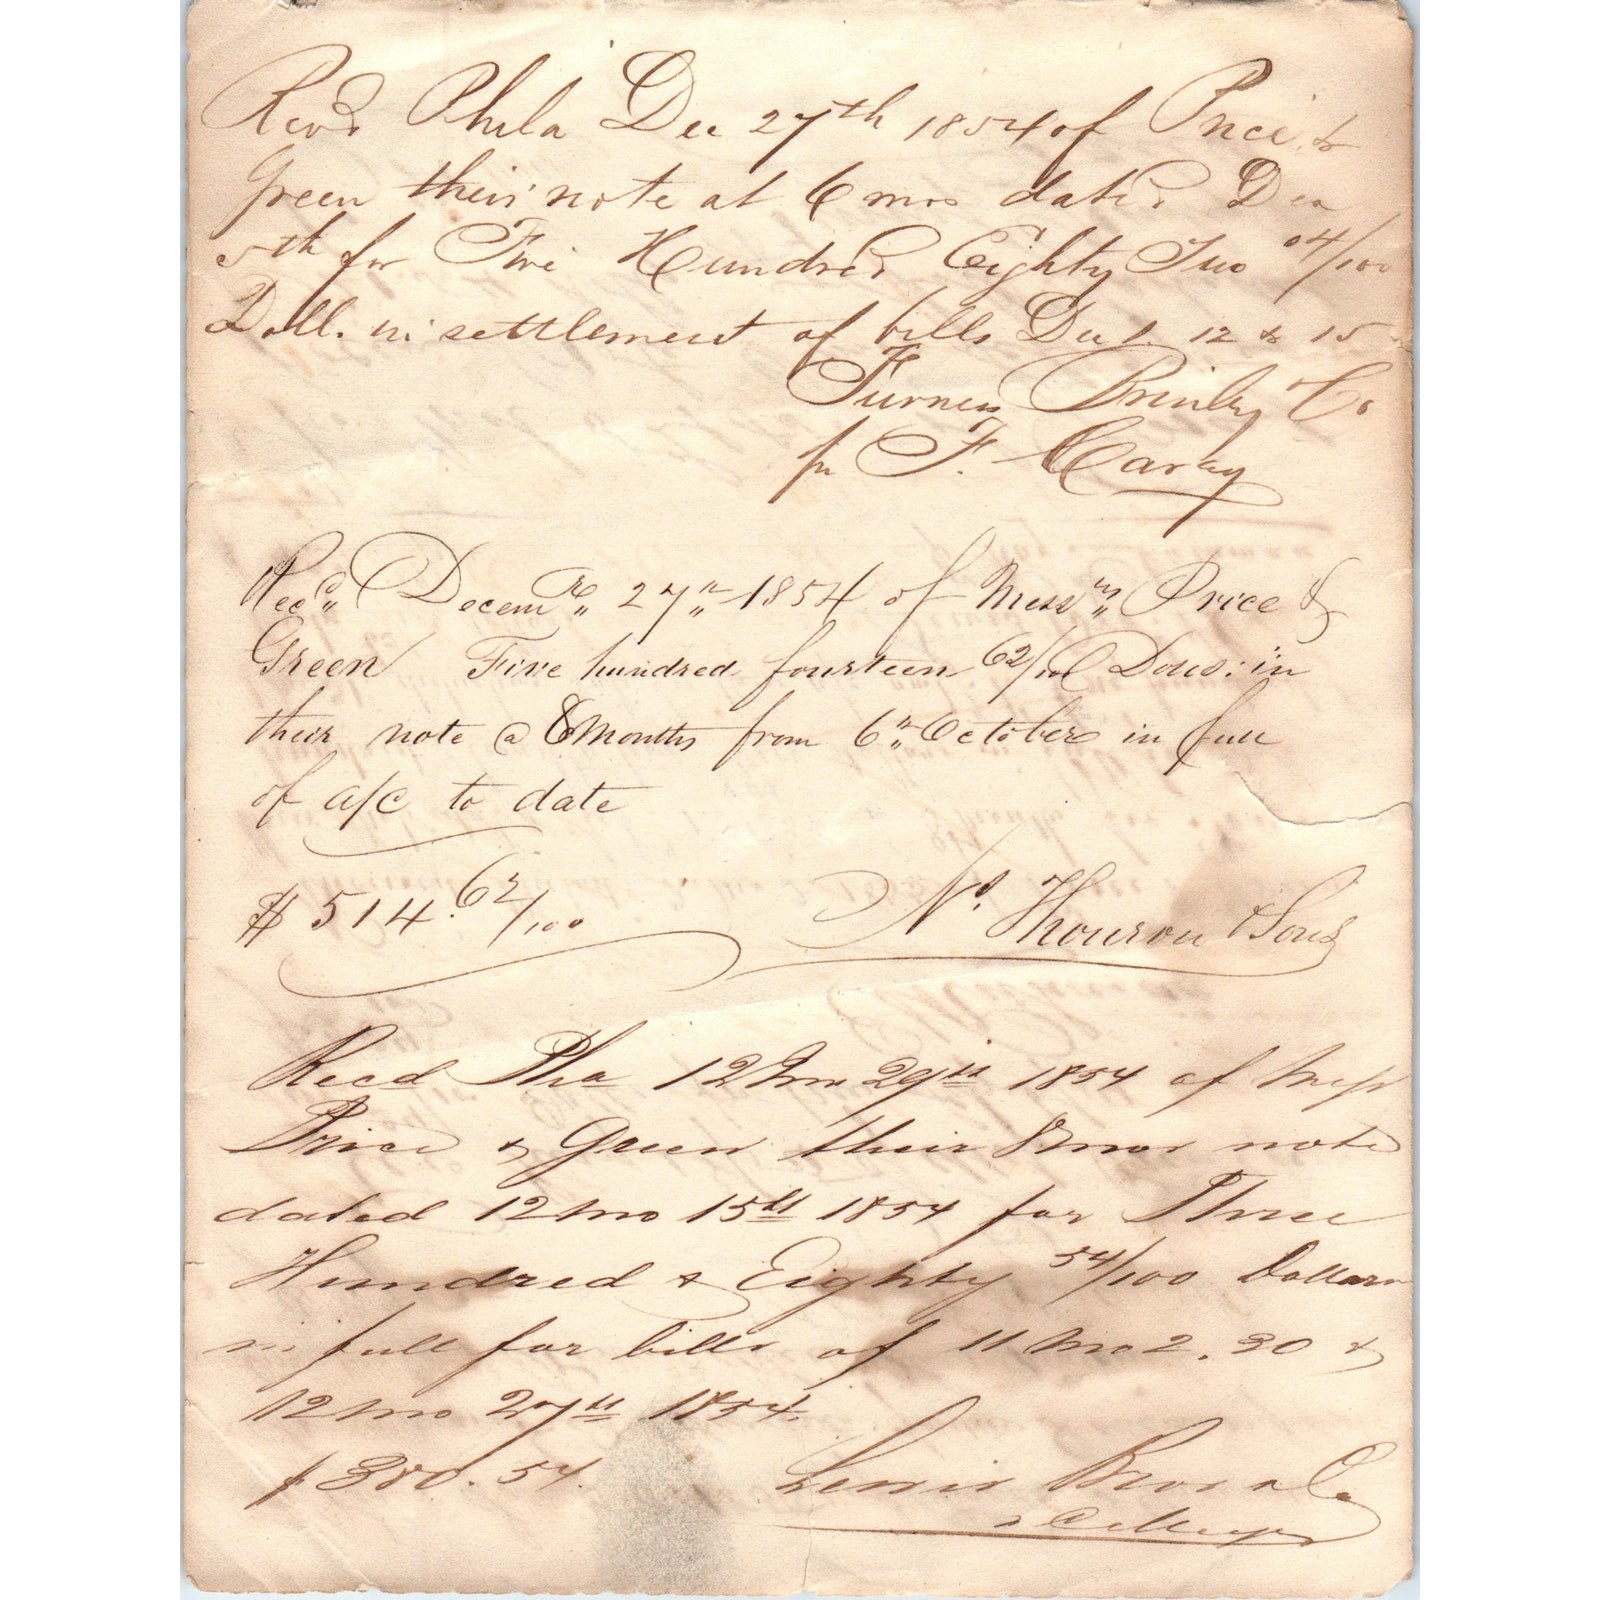 Recd Phila Dec 27th 1854 of Price &
Green their note at 6 mos dated Dec
5th for Five Hundred Eighty Two 04/100
Doll. in settlement of bills Dec 1. 12 & 15
Furness Brinley & Co
pr F. Caray
Recd Decemre 27th 1854 of Messrs Price &
Green Five hundred fourteen 62/100 Dolls: in
their note @ 8 Months from 6th October in full
of a/c to date
$514.62/100 Ns. Thouron & Sons
Recd Pha 12 mo 29th 1854 of Messr
Price & Green their 8 mos note
dated 12 mo 15th 1854 for Three
Hundred & Eighty 54/100 Dollars
in full for bills of 11 mo 2. 30 &
12 mo 27th 1854.
$380.54. Lewis Bros & Co